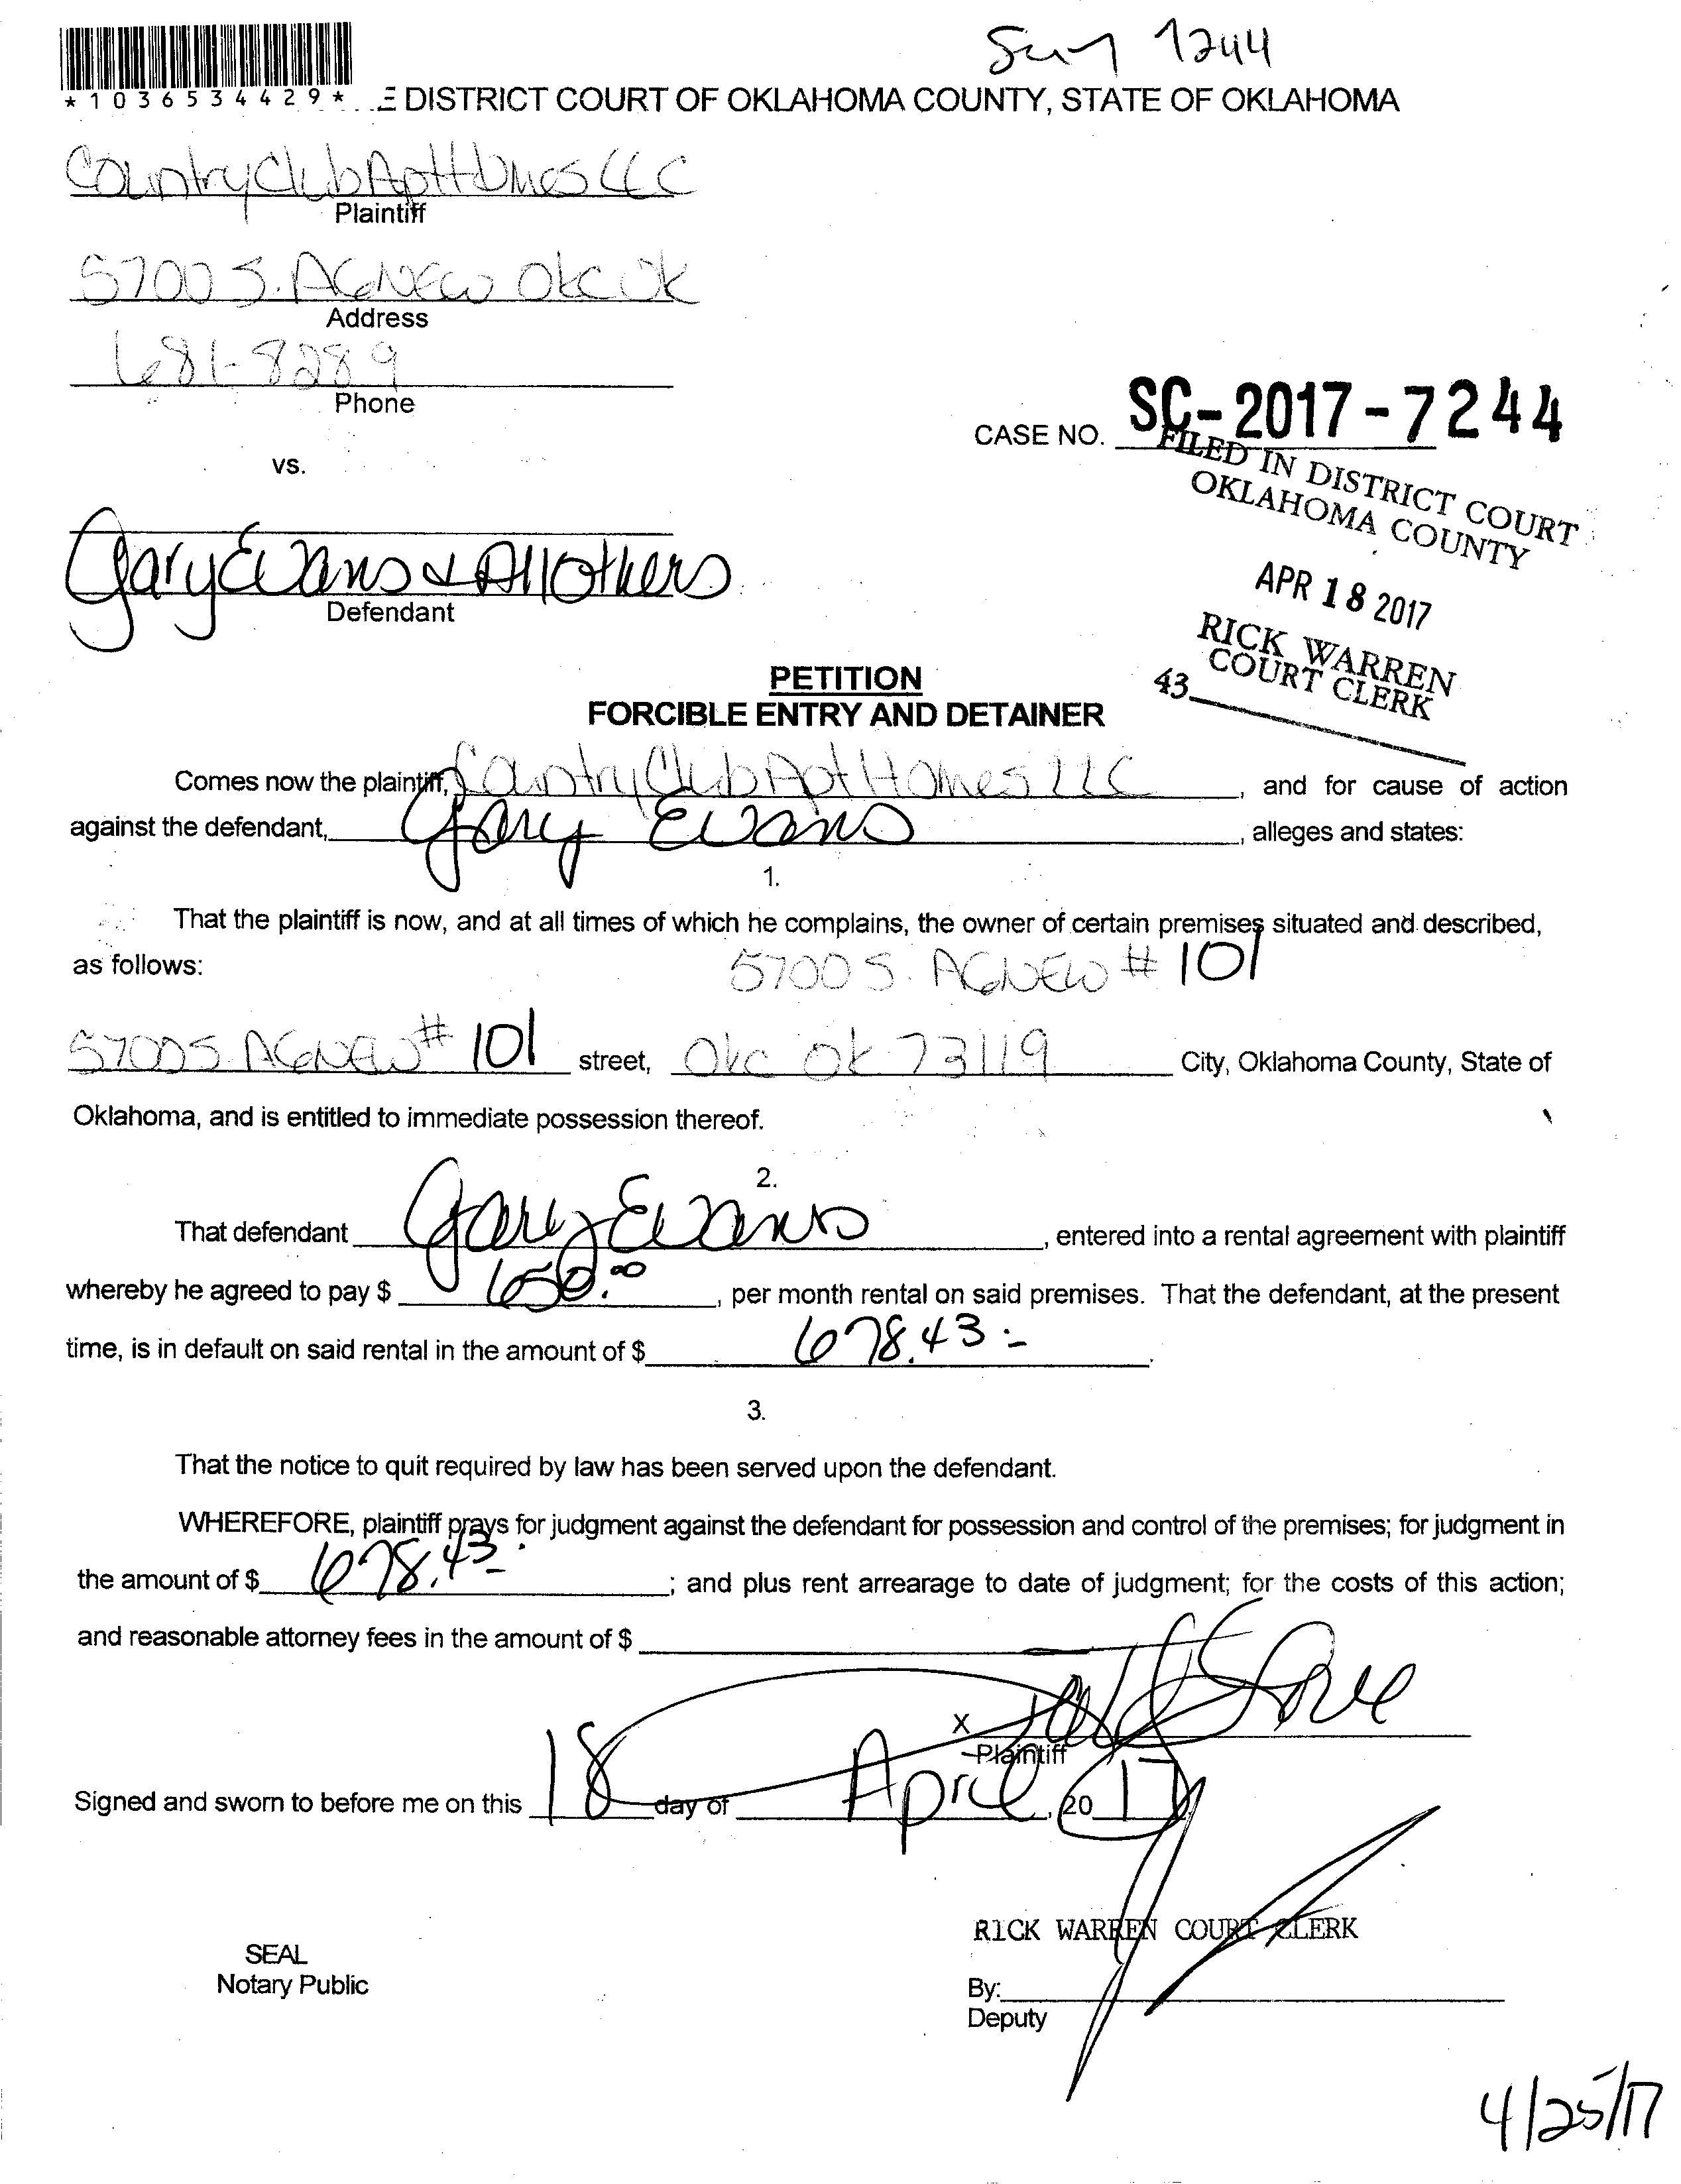 *1036534429*
E DISTRICT COURT OF OKLAHOMA COUNTY, STATE OF OKLAHOMA
Country Club Apt Homes LLC
Plaintiff
5700 S. AGNEW OKC OK
Address
681-8289
Phone
CASE NO. SC-2017-7244
vs.
FILED IN DISTRICT COURT
OKLAHOMA COUNTY
APR 18 2017
RICK WARREN
COURT CLERK
43
Gary Evans & All Others
Defendant
PETITION
FORCIBLE ENTRY AND DETAINER
Comes now the plaintiff, Country Club Apt Homes LLC, and for cause of action
against the defendant, Gary Evans, alleges and states:
1.
That the plaintiff is now, and at all times of which he complains, the owner of certain premises situated and described,
as follows: 5700 S. AGNEW # 101
5700 S. AGNEW # 101 street, OKC OK 73119 City, Oklahoma County, State of
Oklahoma, and is entitled to immediate possession thereof.
2.
That defendant Gary Evans, entered into a rental agreement with plaintiff
whereby he agreed to pay $ 650.00, per month rental on said premises. That the defendant, at the present
time, is in default on said rental in the amount of $ 678.43.
3.
That the notice to quit required by law has been served upon the defendant.
WHEREFORE, plaintiff prays for judgment against the defendant for possession and control of the premises; for judgment in
the amount of $ 678.43; and plus rent arrearage to date of judgment; for the costs of this action;
and reasonable attorney fees in the amount of $
X
Plaintiff
Signed and sworn to before me on this 18 day of April, 2017
RICK WARREN COURT CLERK
SEAL
Notary Public
By:
Deputy
4/25/17